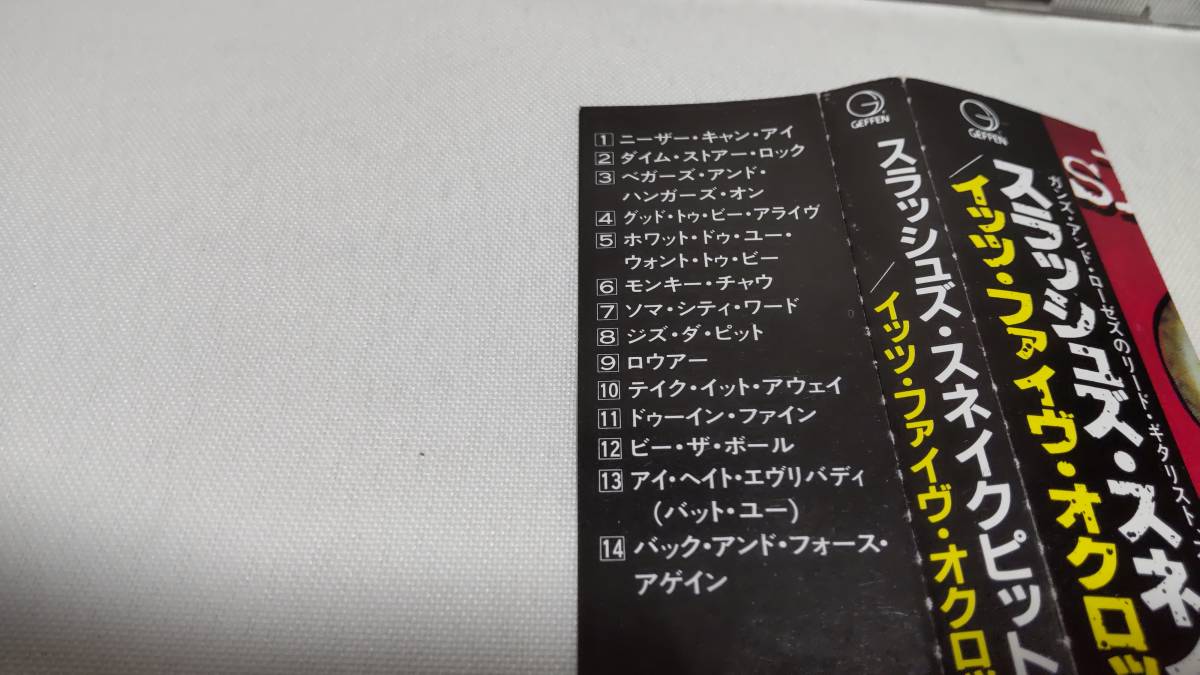 1 ニーザー・キャン・アイ
2 ダイム・ストアー・ロック
3 ベガーズ・アンド・
ハンガーズ・オン
4 グッド・トゥ・ビー・アライヴ
5 ホワット・ドゥ・ユー・
ウォント・トゥ・ビー
6 モンキー・チャウ
7 ソマ・シティ・ワード
8 ジズ・ダ・ピット
9 ロウアー
10 テイク・イット・アウェイ
11 ドゥーイン・ファイン
12 ビー・ザ・ボール
13 アイ・ヘイト・エヴリバディ
(バット・ユー)
14 バック・アンド・フォース・
アゲイン
GEFFEN
スラッシュズ・スネイクピット
/イッツ・ファイヴ・オクロッ
GEFFEN
スラッシュズ・スネ
/イッツ・ファイヴ・オクロッ
ガンズ・アンド・ローゼズのリード・ギタリスト
S